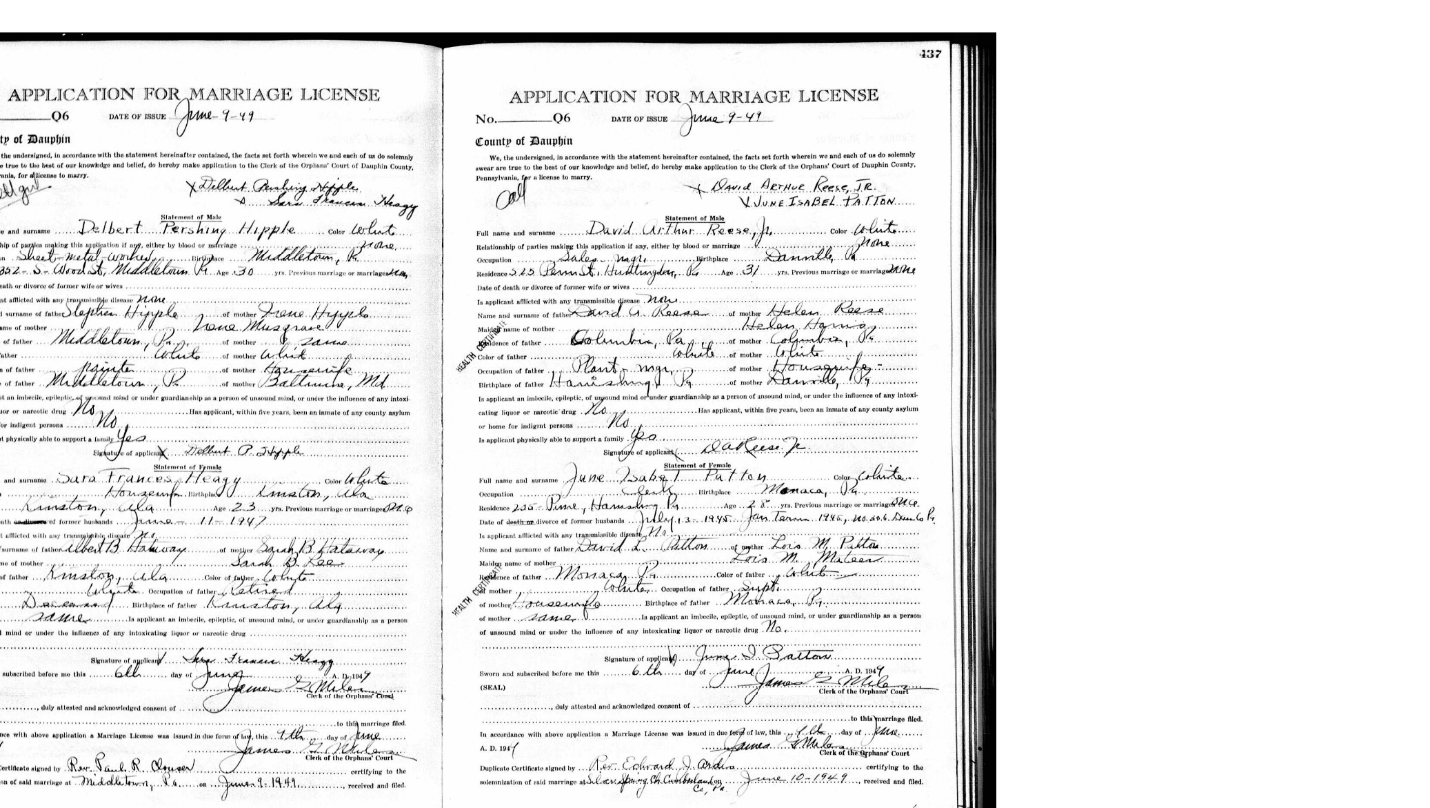 APPLICATION FOR MARRIAGE LICENSE
Q6 DATE OF ISSUE June 9-49
ty of Dauphin
the undersigned, in accordance with the statement hereinafter contained, the facts set forth wherein we and each of us do solemnly
e true to the best of our knowledge and belief, do hereby make application to the Clerk of the Orphans' Court of Dauphin County,
vania, for a license to marry.
X Delbert Pershing Hipple
Sara Frances Heagy
Statement of Male
e and surname Delbert Pershing Hipple Color White
hip of parties making this application if any, either by blood or marriage none
Sheet metal worker Birthplace Middletown, Pa
352 - S- Wood St, Middletown Pa Age 30 yrs. Previous marriage or marriages
eath or divorce of former wife or wives
nt afflicted with any transmissible disease none
d surname of father Stephen Hipple of mother Irene Hipple
ame of mother Irene Musgrave
of father Middletown, Pa. of mother same
ather White of mother White
of father painter of mother Housewife
of father Middletown, Pa of mother Baltimore, Md
t an imbecile, epileptic, of unsound mind or under guardianship as a person of unsound mind, or under the influence of any intoxi-
uor or narcotic drug No Has applicant, within five years, been an inmate of any county asylum
for indigent persons No
t physically able to support a family Yes
Signature of applicant X Delbert P. Hipple
Statement of Female
and surname Sara Frances Heagy Color White
Housewife Birthplace Kinston, Ala
Kinston, Ala Age 23 yrs. Previous marriage or marriages One
ath or divorce of former husbands June - 11 - 1947
t afflicted with any transmissible disease No
surname of father Albert B Hataway of mother Sarah B Hataway
me of mother Sarah B. Lee
f father Kinston, Ala Color of father White
White Occupation of father Retired
Deceased Birthplace of father Kinston, Ala
same Is applicant an imbecile, epileptic, of unsound mind, or under guardianship as a person
d mind or under the influence of any intoxicating liquor or narcotic drug
Signature of applicant Sara Frances Heagy
subscribed before me this 6th day of June A. D. 1949
James G Miles
Clerk of the Orphans' Court
, duly attested and acknowledged consent of
to this marriage filed.
nce with above application a Marriage License was issued in due form of law, this 9th day of June
James G Miles
Clerk of the Orphans' Court
Certificate signed by Rev. Paul R. Clouser certifying to the
n of said marriage at Middletown, Pa. on June 9-1949, received and filed.
437
APPLICATION FOR MARRIAGE LICENSE
No. Q6 DATE OF ISSUE June 9-49
County of Dauphin
We, the undersigned, in accordance with the statement hereinafter contained, the facts set forth wherein we and each of us do solemnly
swear are true to the best of our knowledge and belief, do hereby make application to the Clerk of the Orphans' Court of Dauphin County,
Pennsylvania, for a license to marry.
Call
X DAVID ARTHUR REESE, JR.
X JUNE ISABEL PATTON
Statement of Male
Full name and surname David Arthur Reese, Jr. Color White
Relationship of parties making this application if any, either by blood or marriage None
Occupation Sales mgr. Birthplace Danville, Pa
Residence 525 Penn St. Huntingdon, Pa Age 31 yrs. Previous marriage or marriages none
Date of death or divorce of former wife or wives
Is applicant afflicted with any transmissible disease non
Name and surname of father David A. Reese of mother Helen Reese
Maiden name of mother Helen Harris
HEALTH CERTIFICATE
Residence of father Columbia, Pa of mother Columbia, Pa
Color of father White of mother White
Occupation of father Plant mgr. of mother Housewife
Birthplace of father Harrisburg, Pa of mother Danville, Pa
Is applicant an imbecile, epileptic, of unsound mind or under guardianship as a person of unsound mind, or under the influence of any intoxi-
cating liquor or narcotic drug No Has applicant, within five years, been an inmate of any county asylum
or home for indigent persons No
Is applicant physically able to support a family Yes
Signature of applicant DA Reese Jr
Statement of Female
Full name and surname June Isabel Patton Color White
Occupation Clerk Birthplace Monaca, Pa.
Residence Pine, Harrisburg Pa Age 25 yrs. Previous marriage or marriages One
Date of death or divorce of former husbands July 13 - 1945 Jan term 1945, no. 606
Is applicant afflicted with any transmissible disease No
Name and surname of father David L. Patton of mother Lois M. Patton
Maiden name of mother Lois M.
HEALTH CERTIFICATE
Residence of father Monaca Pa. Color of father White
of mother White Occupation of father Supt.
of mother Housewife Birthplace of father Monaca, Pa.
of mother same Is applicant an imbecile, epileptic, of unsound mind, or under guardianship as a person
of unsound mind or under the influence of any intoxicating liquor or narcotic drug No.
Signature of applicant June I. Patton
Sworn and subscribed before me this 6th day of June A. D. 1949
James G Miles
(SEAL) Clerk of the Orphans' Court
, duly attested and acknowledged consent of
to this marriage filed.
In accordance with above application a Marriage License was issued in due form of law, this 9th day of June
A. D. 1949 James G Miles
Clerk of the Orphans' Court
Duplicate Certificate signed by Rev. Edward J. Ardis certifying to the
solemnization of said marriage at Silver Spring Ch Cumberland Co, Pa. on June 10-1949, received and filed.